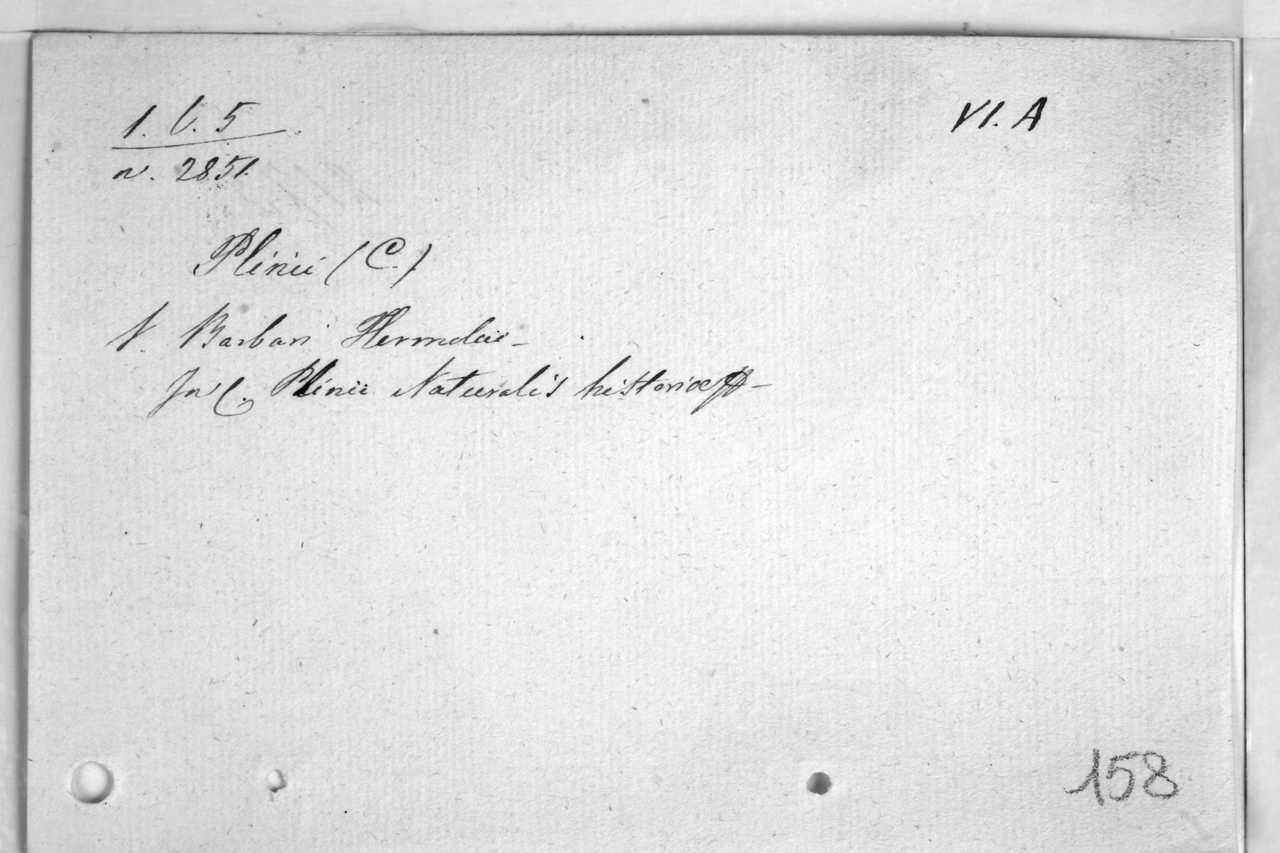 1. b. 5.
VI. A
n. 2851.
Plinii (C.)
V. Barbari Hermolai-
In C. Plinii Naturalis historiæ
158